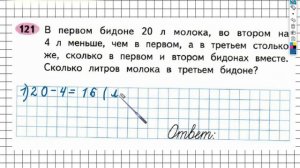 121 В первом бидоне 20 л молока, во втором на
4 л меньше, чем в первом, а в третьем столько
же, сколько в первом и втором бидонах вместе.
Сколько литров молока в третьем бидоне?
1) 20 - 4 = 16 (л
Ответ: